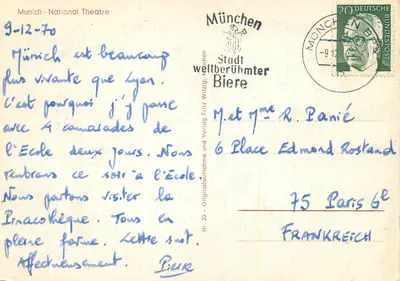 Munich - National Theatre
9-12-70
Münich est beaucoup
plus vivante que Lyon.
C'est pourquoi j'y passe
avec 4 camarades de
l'Ecole deux jours. Nous
rentrons ce soir à l'Ecole.
Nous partons visiter la
Pinacothèque. Tous en
pleine forme. Lettre suit.
Affectueusement. Pierre
Nr. 20 - Originalaufnahme und Verlag Fritz Witzig, München
München
Stadt
weltberühmter
Biere
MÜNCHEN
20 DEUTSCHE
BUNDESPOST
M. et Mme R. Panié
6 Place Edmond Rostand
75 Paris 6e
FRANKREICH